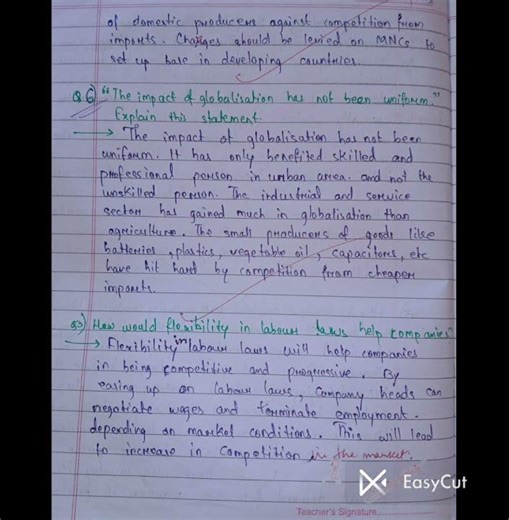 of domestic producers against competition from
imports. Charges should be levied on MNCs to
set up base in developing countries.
Q6) "The impact of globalisation has not been uniform."
Explain this statement.
→ The impact of globalisation has not been
uniform. It has only benefited skilled and
professional person in urban area and not the
unskilled person. The industrial and service
sector has gained much in globalisation than
agriculture. The small producers of goods like
batteries, plastics, vegetable oil, capacitors, etc
have hit hard by competition from cheaper
imports.
How would flexibility in labour laws help companies?
→ Flexibility in labour laws will help companies
in being competitive and progressive. By
easing up on labour laws, company heads can
negotiate wages and terminate employment.
depending on market conditions. This will lead
to increase in competition in the market.
EasyCut
Teacher's Signature